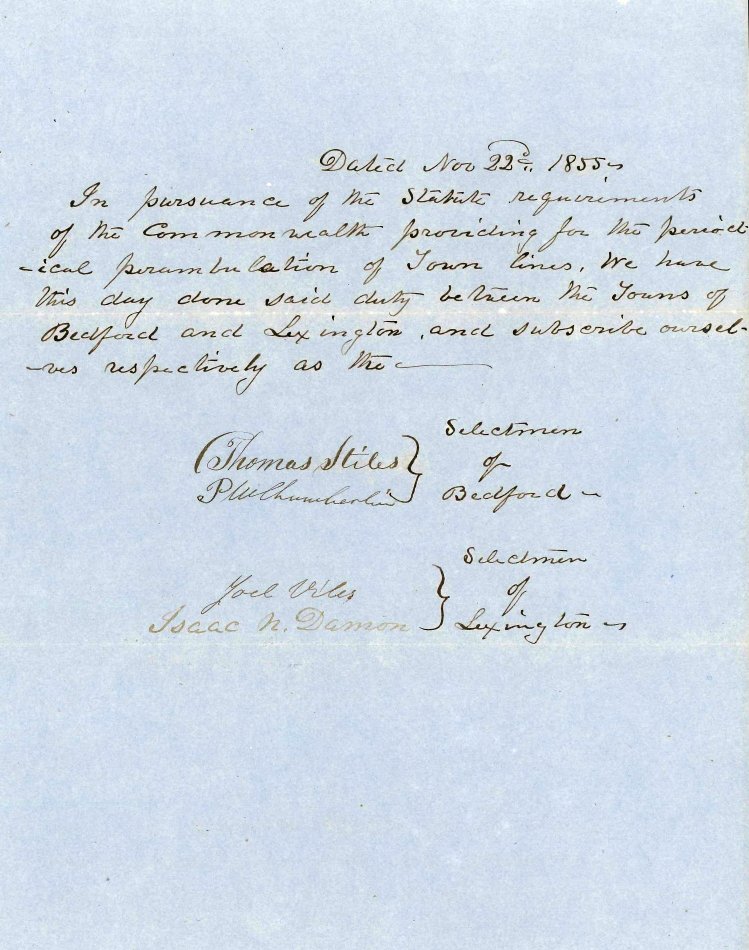 Dated Nov 22d. 1855
In pursuance of the Statute requirements
of the Commonwealth providing for the period-
-ical perambulation of Town lines, We have
this day done said duty between the Towns of
Bedford and Lexington, and subscribe oursel-
-ves respectively as the
Thomas Stiles } Selectmen
of
P W Chamberlin Bedford
Selectmen
Joel Viles } of
Isaac N. Damon Lexington